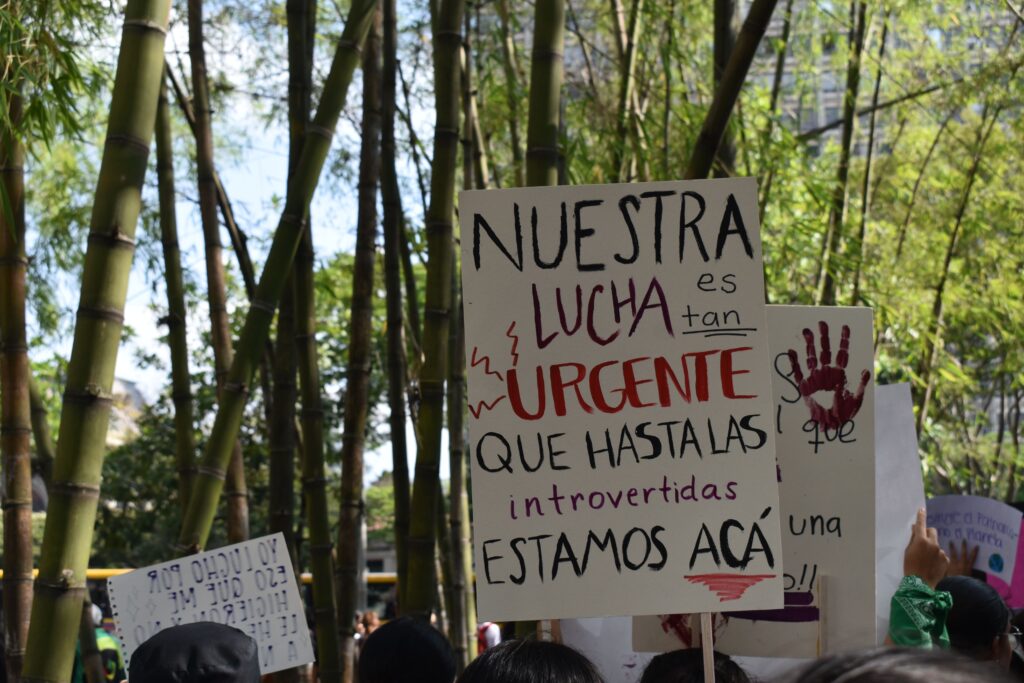 NUESTRA
LUCHA es
tan
URGENTE
QUE HASTA LAS
introvertidas
ESTAMOS ACÁ
que
una
YO LUCHO POR
ESO QUE ME
HICIERON A